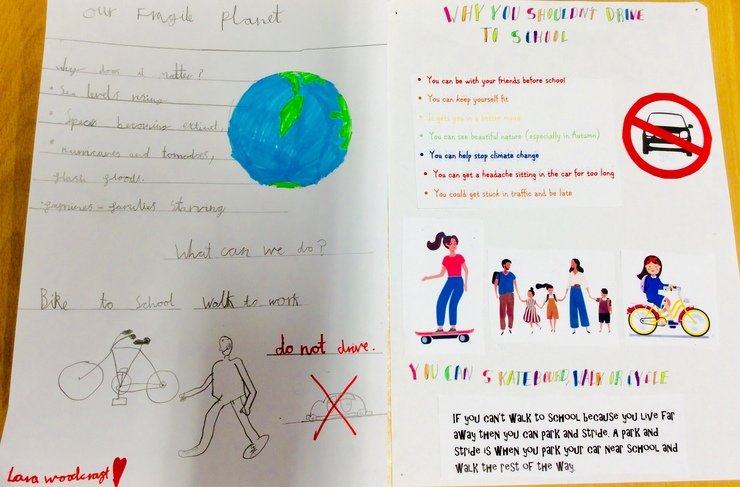 our Fragile planet
why does it matter?
• Sea levels rising
• Spaces becoming extinct,
• Hurricanes and tornadoes,
flash floods.
famines - families starving
What can we do?
Bike to School walk to work
do not drive.
Lara woodcraft
WHY YOU SHOULDNT DRIVE
TO SCHOOL
• You can be with your friends before school
• You can keep yourself fit
• It gets you in a better mood
• You can see beautiful nature (especially in Autumn)
• You can help stop climate change
• You can get a headache sitting in the car for too long
• You could get stuck in traffic and be late
YOU CAN SKATEBOURD, WALK OR CYCLE
IF YOU CAN'T WALK TO SCHOOL BECAUSE YOU LIVE FAR
AWAY THEN YOU CAN PARK AND STRIDE. A PARK AND
STRIDE IS WHEN YOU PARK YOUR CAR NEAR SCHOOL AND
WALK THE REST OF THE WAY.